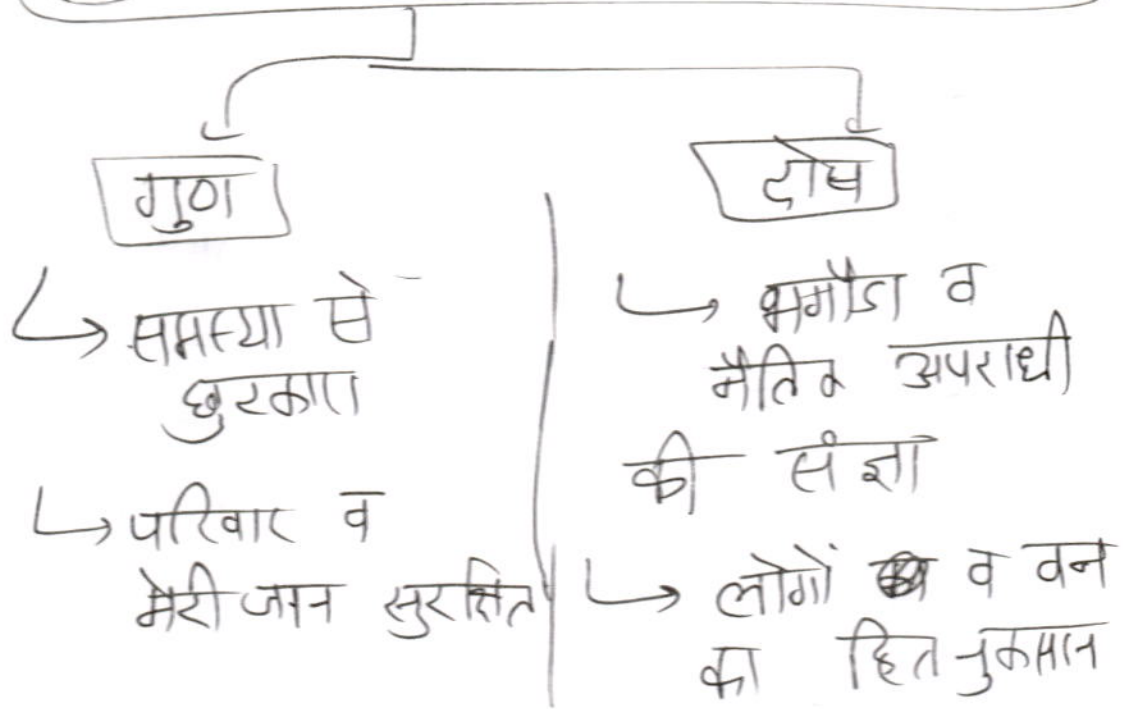 गुण
→ समस्या से
छुटकारा
→ परिवार व
मेरी जान सुरक्षित
दोष
→ भगौडा व
नैतिक अपराधी
की संज्ञा
→ लोगों व वन
का हित नुकसान